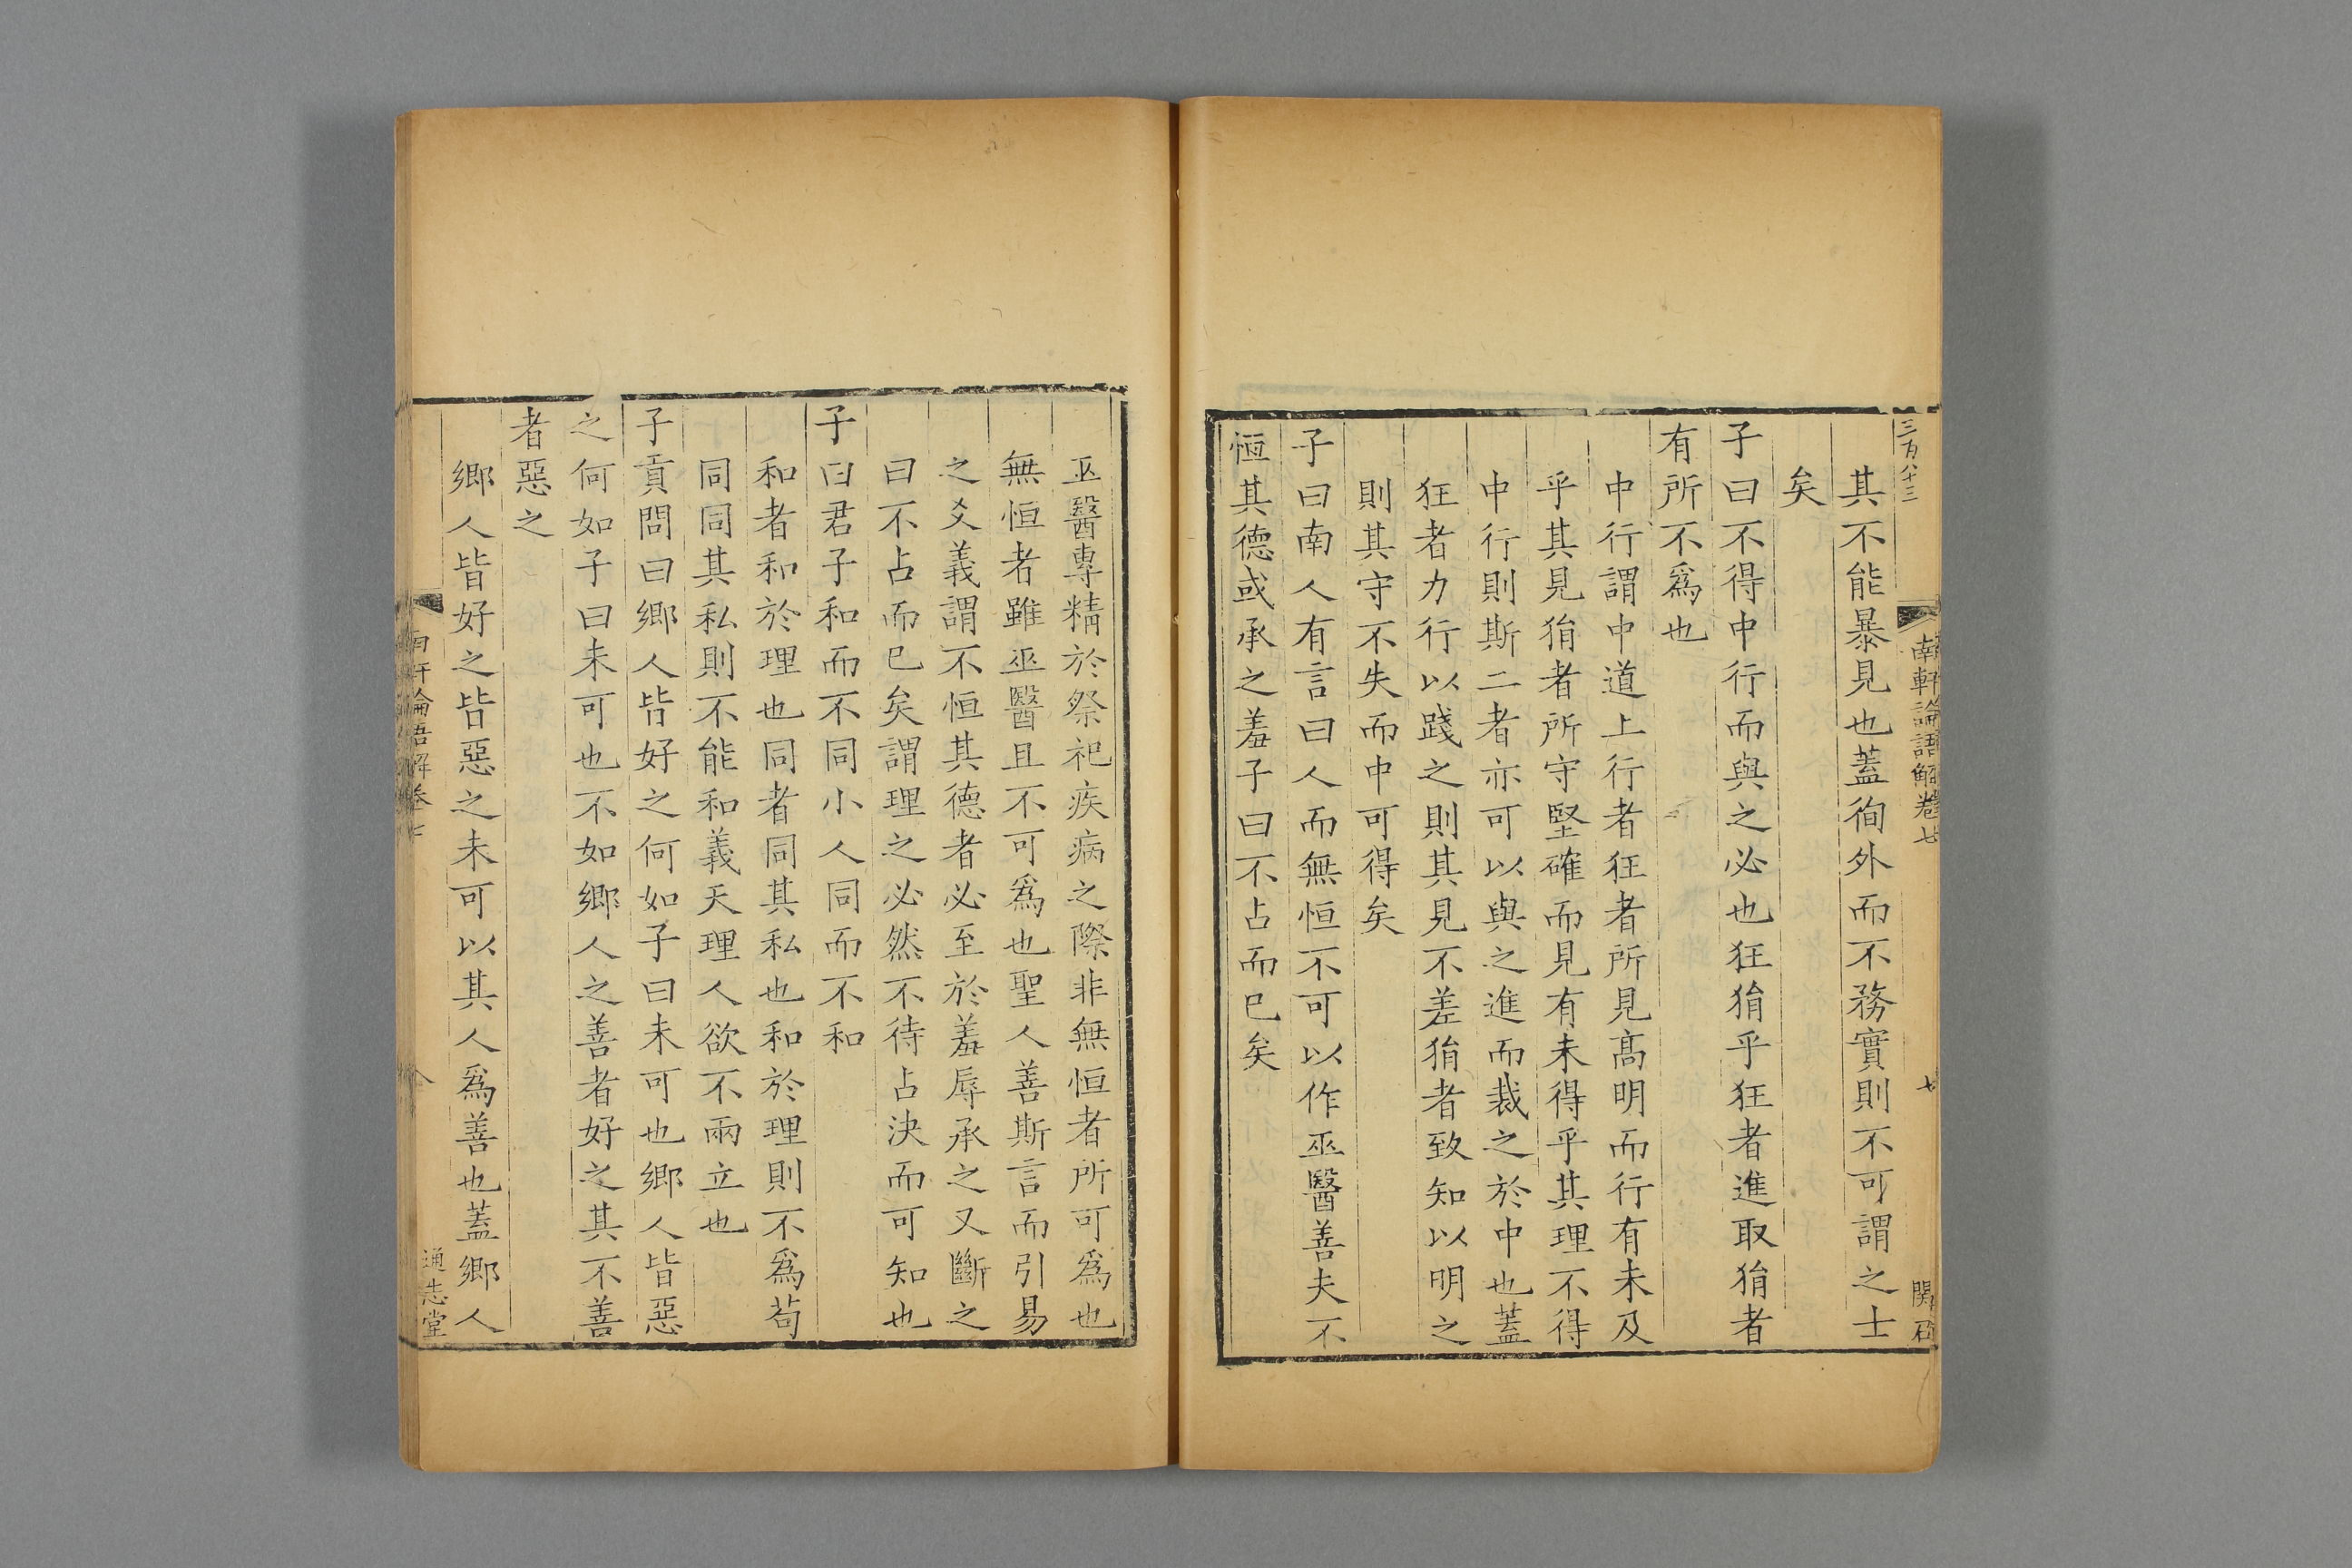 三百八十三
南軒論語解卷七
七
其不能暴見也蓋徇外而不務實則不可謂之士
矣
子曰不得中行而與之必也狂狷乎狂者進取狷者
有所不爲也
中行謂中道上行者狂者所見髙明而行有未及
乎其見狷者所守堅確而見有未得乎其理不得
中行則斯二者亦可以與之進而裁之於中也蓋
狂者力行以踐之則其見不差狷者致知以明之
則其守不失而中可得矣
子曰南人有言曰人而無恒不可以作巫醫善夫不
恒其德或承之羞子曰不占而已矣
巫醫專精於祭祀疾病之際非無恒者所可爲也
無恒者雖巫醫且不可爲也聖人善斯言而引易
之爻義謂不恒其德者必至於羞辱承之又斷之
曰不占而已矣謂理之必然不待占決而可知也
子曰君子和而不同小人同而不和
和者和於理也同者同其私也和於理則不爲茍
同同其私則不能和義天理人欲不兩立也
子貢問曰鄉人皆好之何如子曰未可也鄉人皆惡
之何如子曰未可也不如鄉人之善者好之其不善
者惡之
鄉人皆好之皆惡之未可以其人爲善也蓋鄉人
南軒論語解卷七
通志堂